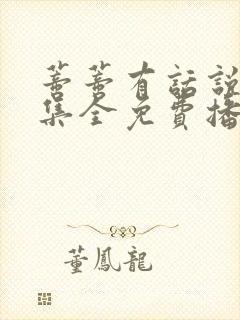 蓍蓍有話說
集全免費播
董鳳龍